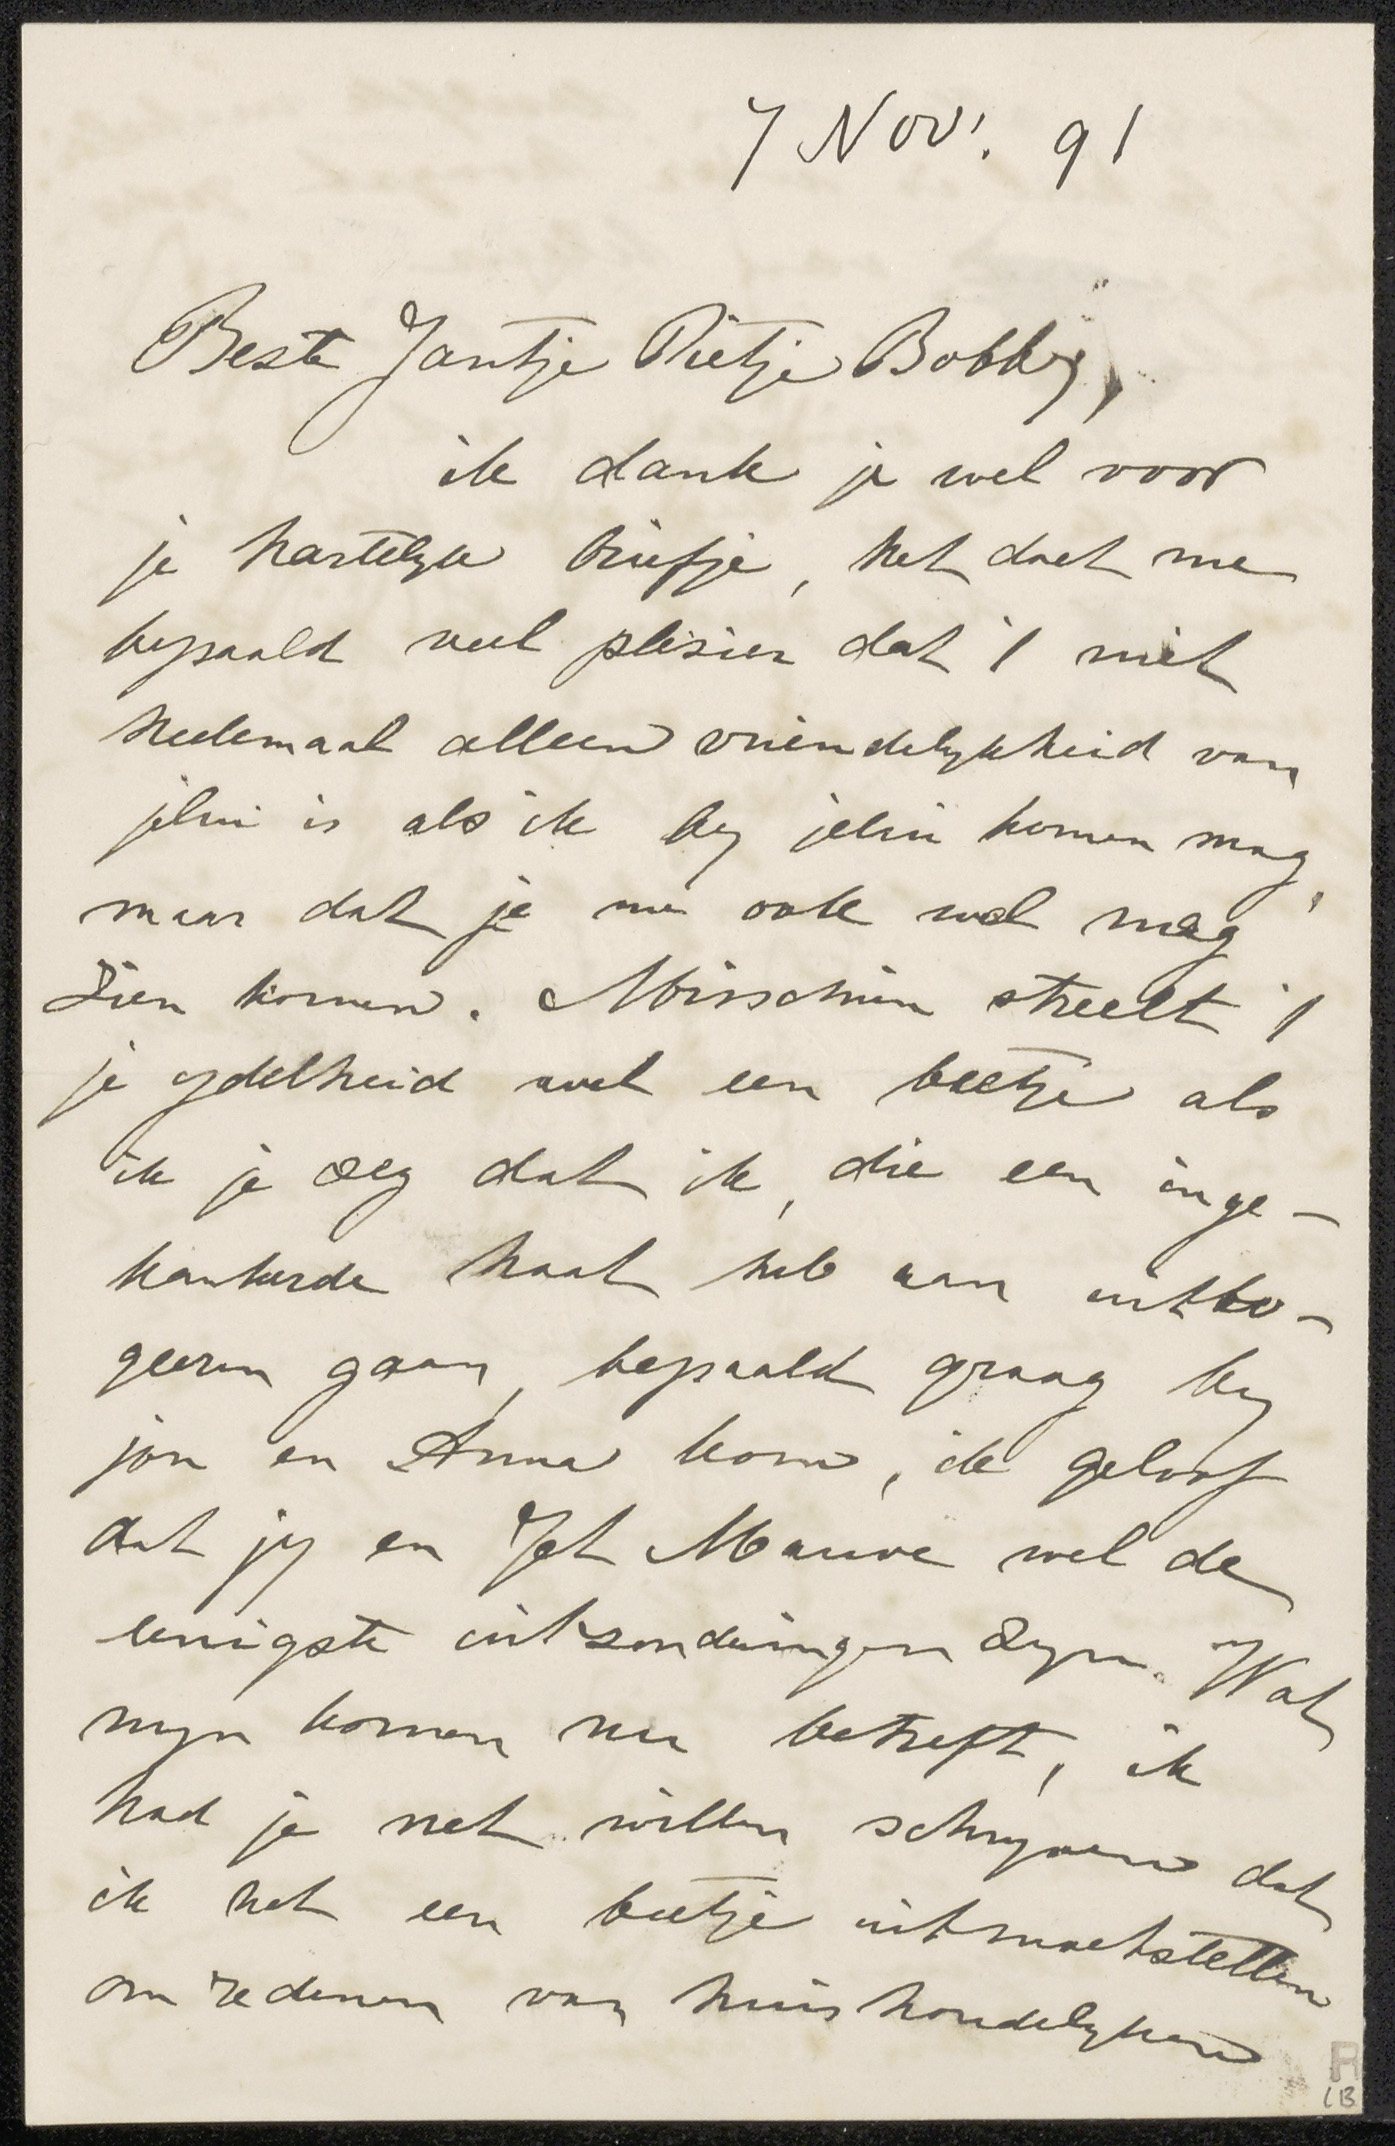 7 Nov. 91
Beste Jantje Pietje Bobby,
ik dank je wel voor
je hartelyk briefje, het doet me
bepaald veel plesier dat 't niet
heelemaal alleen vriendelykheid van
jelui is als ik by jelui komen mag,
maar dat je me ook wel mag
zien komen. Misschien streelt 't
je ydelheid wel een beetje als
ik je zeg dat ik, die een inge-
kankerde haat heb aan uit lo-
geeren gaan, bepaald graag by
jou en Anna kom, ik geloof
dat jy en Jet Mauve wel de
eenigste uitzonderingen zyn. Wat
myn komen nu betreft, ik
had je net willen schryven dat
ik het een beetje uitmoetstellen
om redenen van huishoudelyken